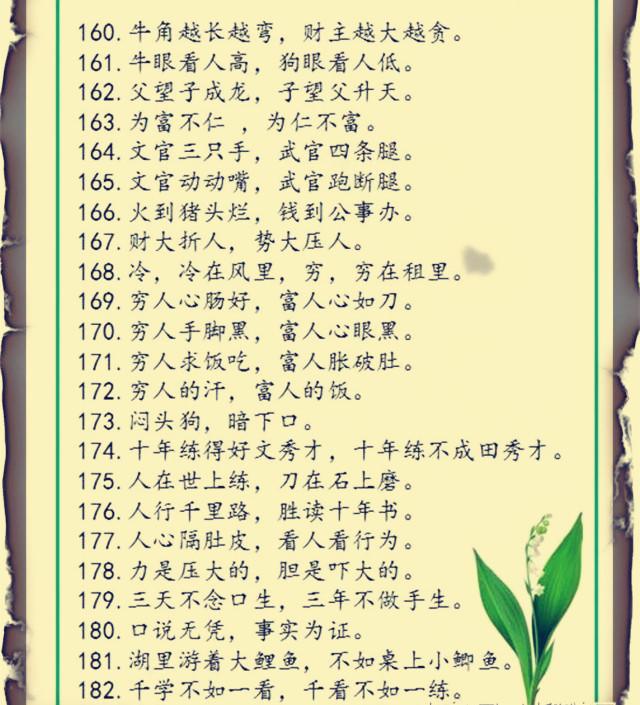 160.牛角越长越弯，财主越大越贪。
161.牛眼看人高，狗眼看人低。
162.父望子成龙，子望父升天。
163.为富不仁 ，为仁不富。
164.文官三只手，武官四条腿。
165.文官动动嘴，武官跑断腿。
166.火到猪头烂，钱到公事办。
167.财大折人，势大压人。
168.冷，冷在风里，穷，穷在租里。
169.穷人心肠好，富人心如刀。
170.穷人手脚黑，富人心眼黑。
171.穷人求饭吃，富人胀破肚。
172.穷人的汗，富人的饭。
173.闷头狗，暗下口。
174.十年练得好文秀才，十年练不成田秀才。
175.人在世上练，刀在石上磨。
176.人行千里路，胜读十年书。
177.人心隔肚皮，看人看行为。
178.力是压大的，胆是吓大的。
179.三天不念口生，三年不做手生。
180.口说无凭，事实为证。
181.湖里游着大鲤鱼，不如桌上小鲫鱼。
182.千学不如一看，千看不如一练。